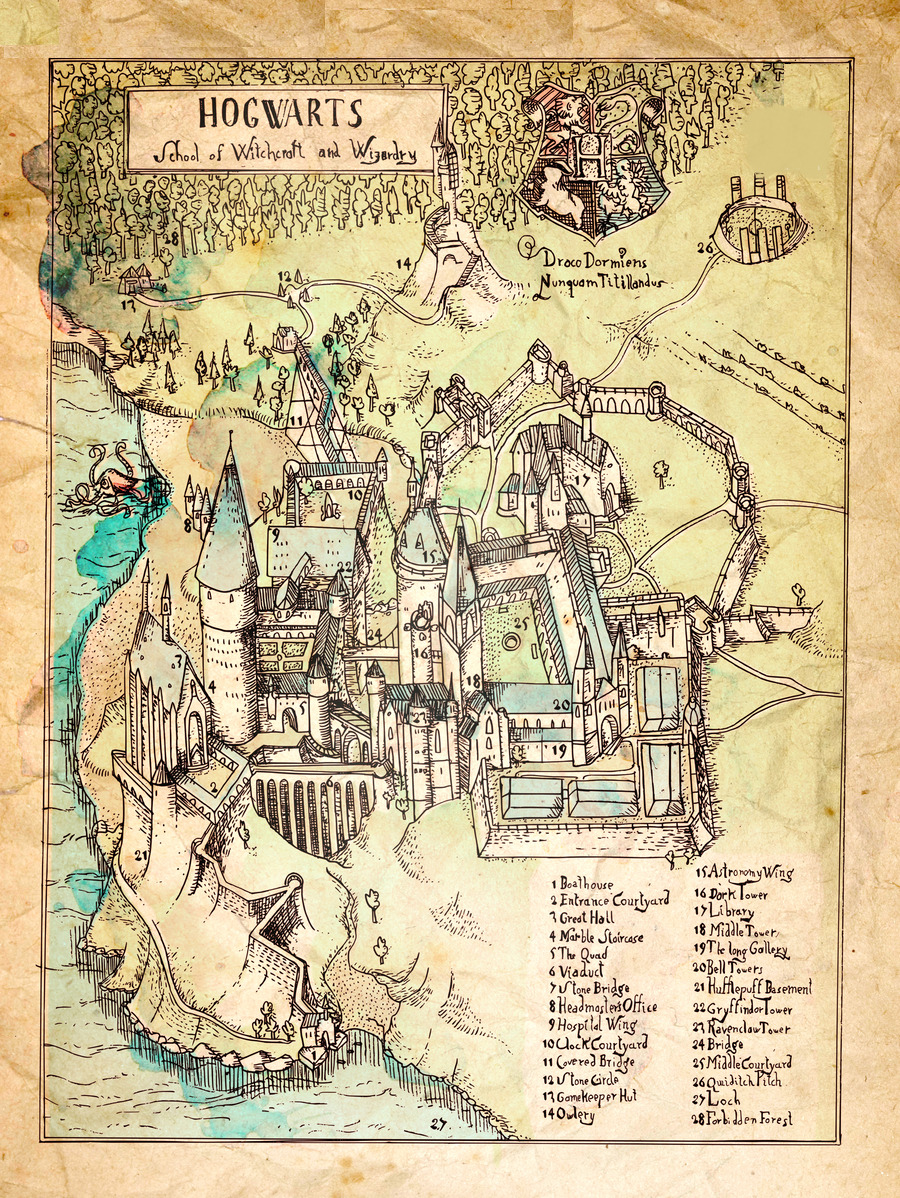 HOGWARTS
School of Witchcraft and Wizardry
H
Draco Dormiens
Nunquam Titillandus
28
13
12
14
26
11
10
17
8
9
15
22
24
25
16
3
4
5
18
23
20
19
2
21
27
1 Boathouse
2 Entrance Courtyard
3 Great Hall
4 Marble Staircase
5 The Quad
6 Viaduct
7 Stone Bridge
8 Headmasters Office
9 Hospital Wing
10 Clock Courtyard
11 Covered Bridge
12 Stone Circle
13 Gamekeeper Hut
14 Owlery
15 Astronomy Wing
16 Dark Tower
17 Library
18 Middle Tower
19 The long Gallery
20 Bell Towers
21 Hufflepuff Basement
22 Gryffindor Tower
23 Ravenclaw Tower
24 Bridge
25 Middle Courtyard
26 Quiditch Pitch
27 Loch
28 Forbidden Forest